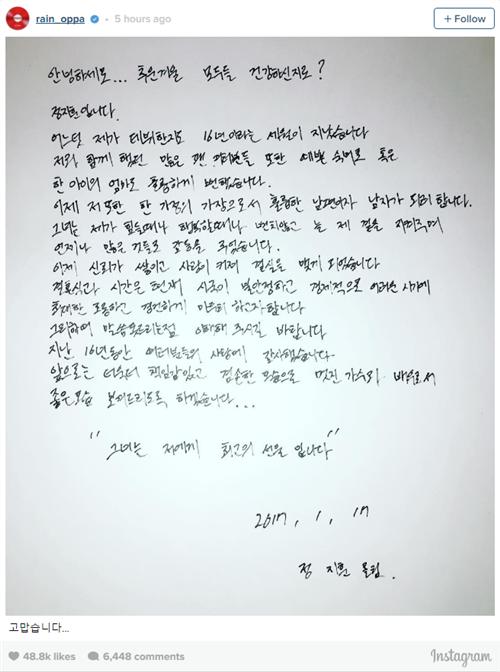 rain_oppa 5 hours ago
+ Follow
안녕하세요... 추운겨울 모두들 건강하신지요?
정지훈입니다.
어느덧 제가 데뷔한지도 16년이라는 세월이 지났습니다
저와 함께 했던 많은 팬 여러분들 또한 예쁜 숙녀로 혹은
한 아이의 엄마로 훌륭하게 변했습니다.
이제 저 또한 한 가정의 가장으로서 훌륭한 남편이자 남자가 되려 합니다.
그녀는 제가 힘들때나 행복할때나 변치않고 늘 제 곁을 지켜주며
언제나 많은 것들로 감동을 주었습니다.
이제 신뢰가 쌓이고 사랑이 커져 결실을 맺게 되었습니다
결혼식과 시간은 현재 시국이 불안정하고 경제적으로 어려운 시기에
최대한 조용하고 경건하게 마무리 하고자합니다
그리하여 말씀못드리는점 이해해 주시길 바랍니다
지난 16년동안 여러분들의 사랑에 감사했습니다.
앞으로는 더욱더 책임감있고 겸손한 모습으로 멋진 가수와 배우로서
좋은모습 보여드리도록 하겠습니다...
"그녀는 저에게 최고의 선물 입니다"
2017. 1. 17
정 지훈 올림.
고맙습니다...
48.8k likes 6,448 comments Instagram